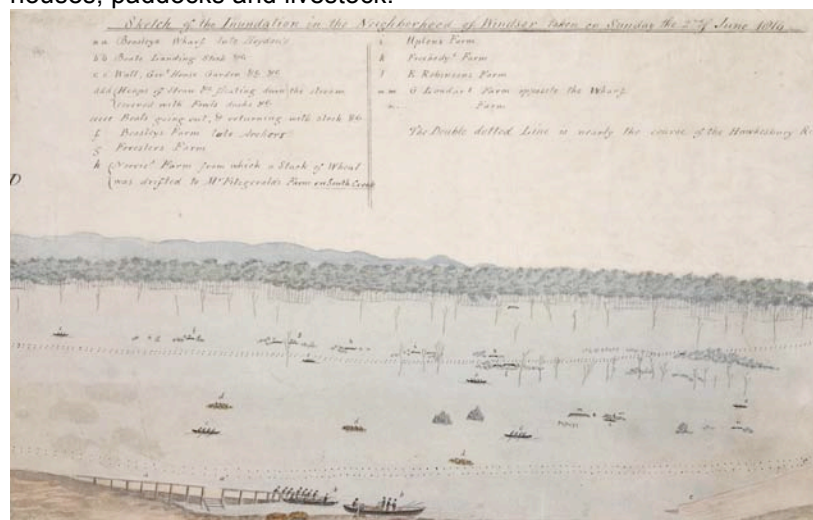 houses, paddocks and livestock.
Sketch of the Inundation in the Neighborhood of Windsor taken on Sunday the 2nd of June 1816
a a Beasleys Wharf late Heydon's
b b Boats Landing Stock &c.
c c Wall, Govt. House Garden &c. &c.
ddd Heaps of Straw &c. floating down the stream
covered with Fowls ducks &c.
eeee Boats going out, & returning with stock &c.
f Beasleys Farm late Archers
g Foresters Farm
h Farm from which a Stack of Wheat
was drifted to Mr. Fitzgeralds Farm on South Creek
i Farm
k Farm
l R. Robinsons Farm
m m G. Farm opposite the Wharf
n Farm
The Double dotted Line is nearly the course of the Hawkesbury R
D